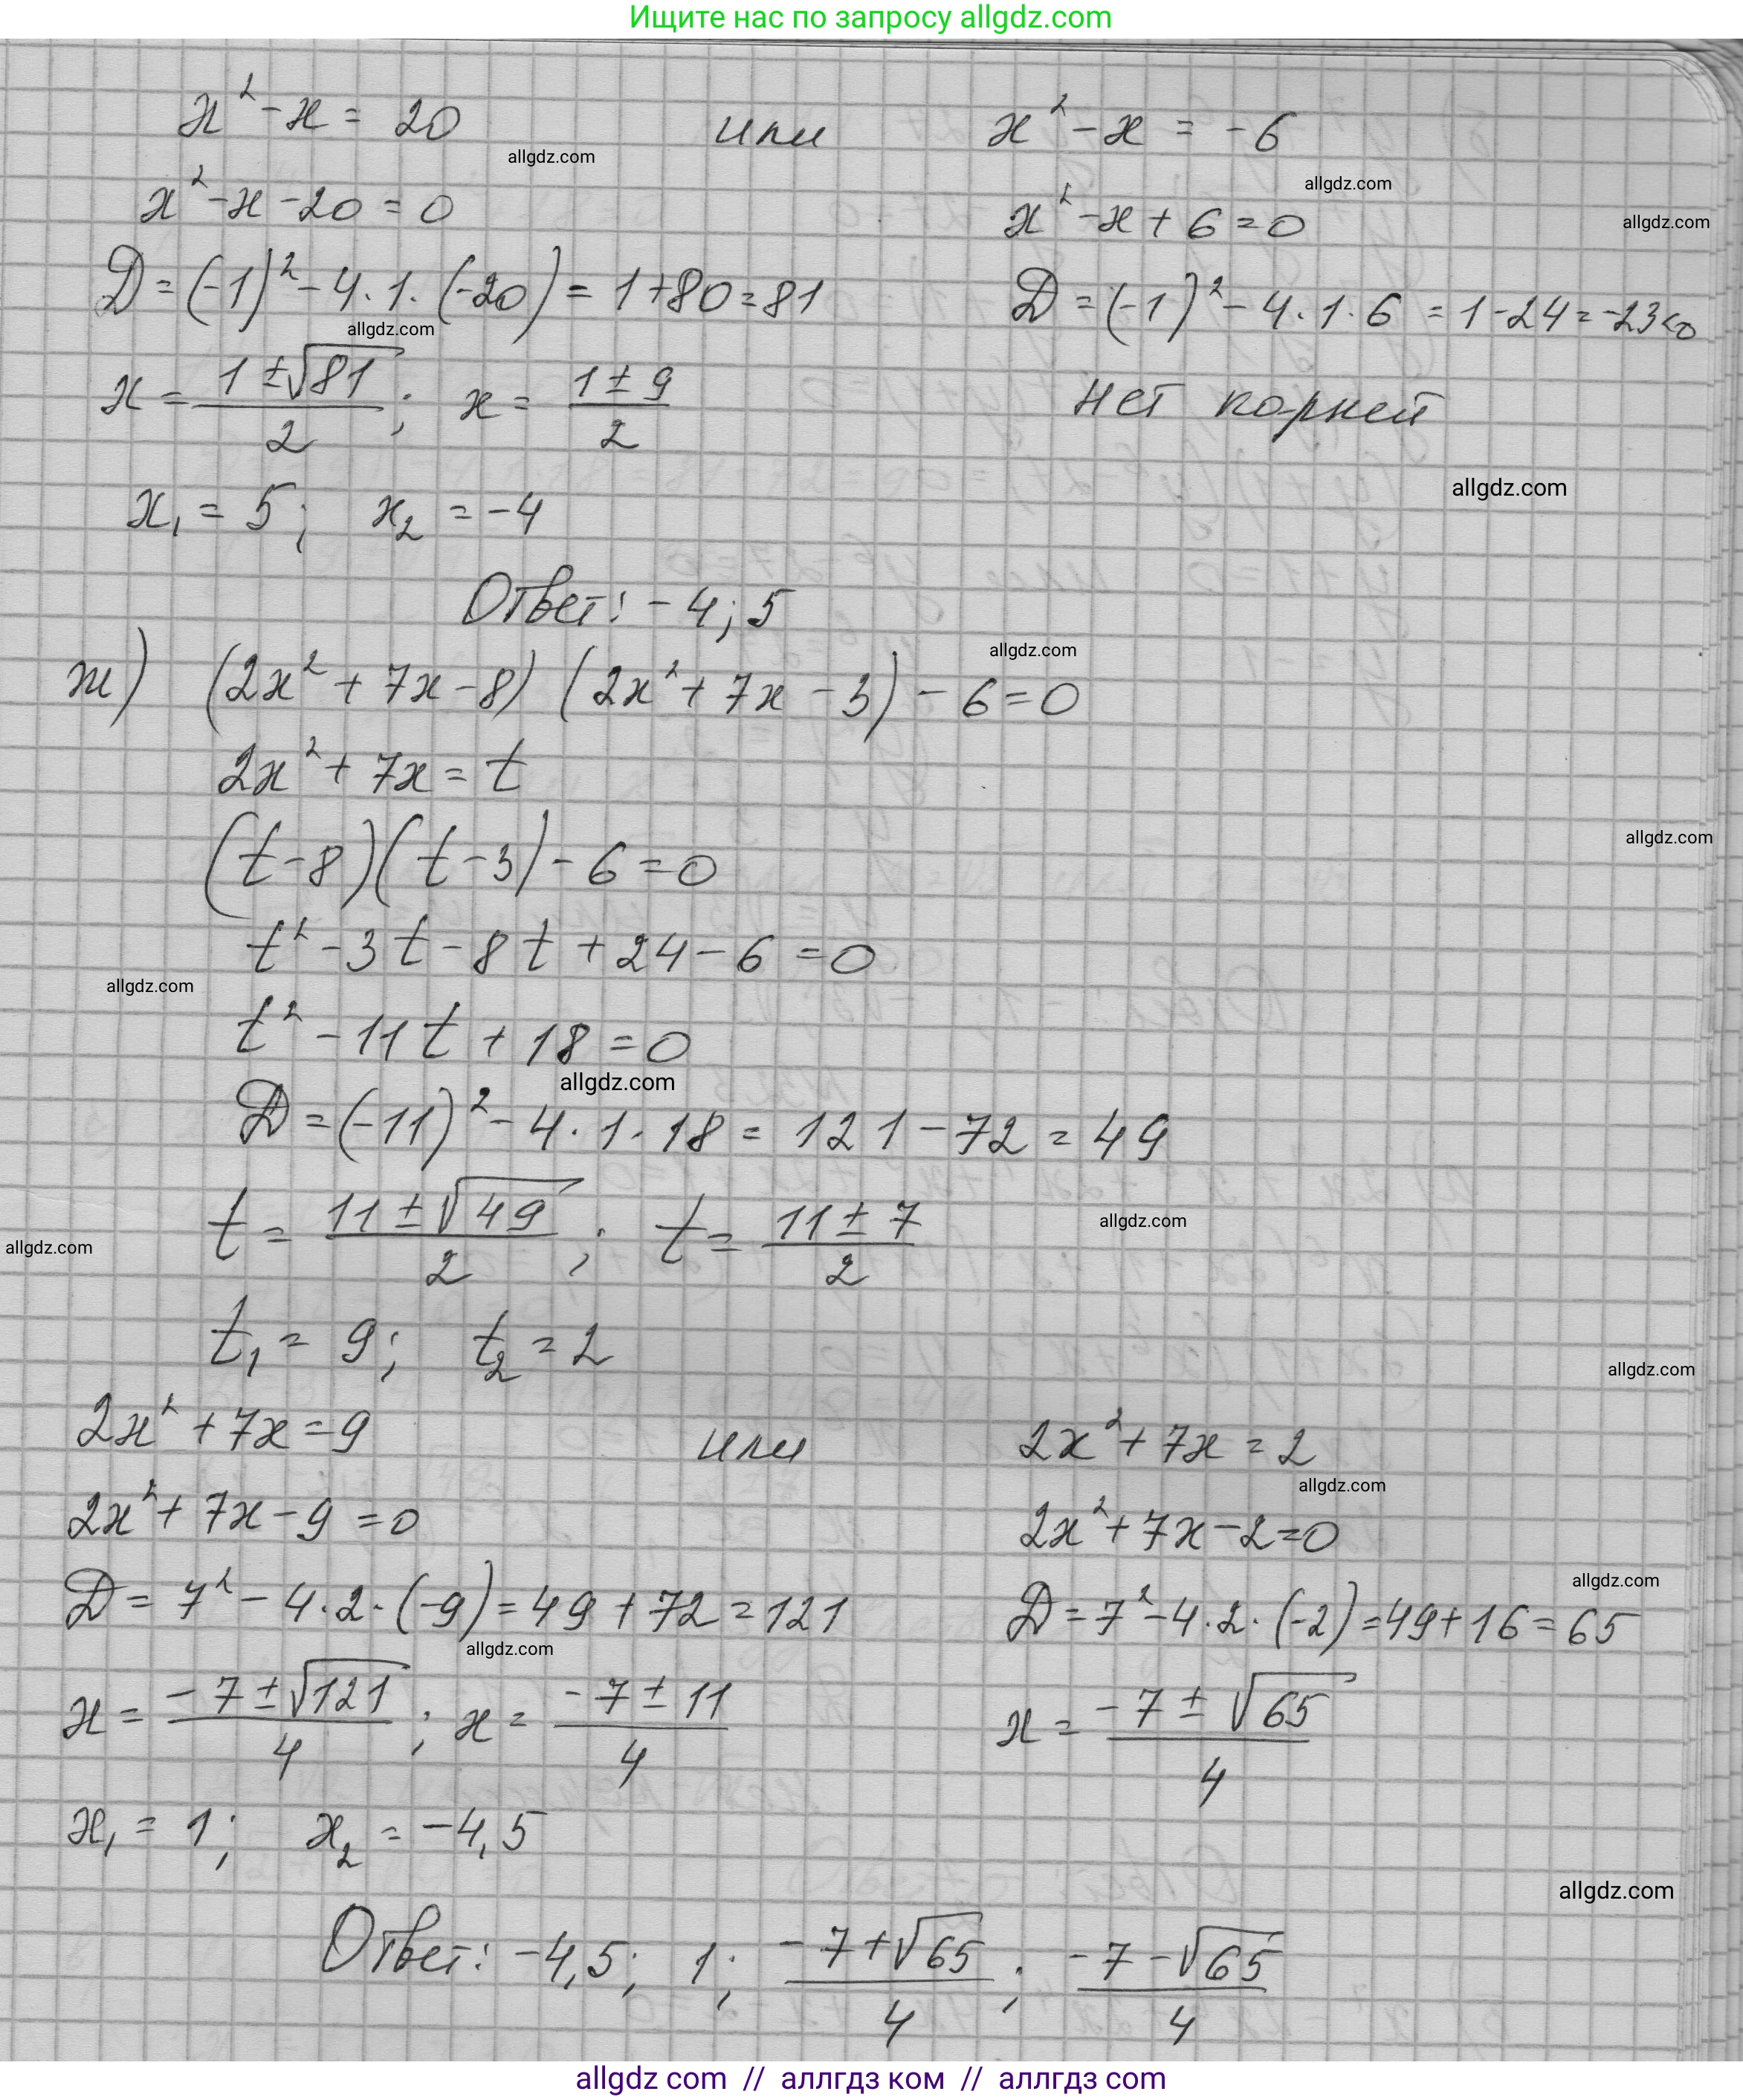 Ищите нас по запросу allgdz.com
x² - x = 20 или x² - x = -6
allgdz.com
allgdz.com
x² - x - 20 = 0 x² - x + 6 = 0
allgdz.com
D = (-1)² - 4 · 1 · (-20) = 1 + 80 = 81 D = (-1)² - 4 · 1 · 6 = 1 - 24 = -23 < 0
allgdz.com
x = (1 ± √81)/2 ; x = (1 ± 9)/2 нет корней
allgdz.com
x₁ = 5; x₂ = -4
Ответ: -4; 5
allgdz.com
ж) (2x² + 7x - 8) (2x² + 7x - 3) - 6 = 0
2x² + 7x = t
allgdz.com
(t - 8)(t - 3) - 6 = 0
t² - 3t - 8t + 24 - 6 = 0
allgdz.com
t² - 11t + 18 = 0
allgdz.com
D = (-11)² - 4 · 1 · 18 = 121 - 72 = 49
t = (11 ± √49)/2 ; t = (11 ± 7)/2
allgdz.com
allgdz.com
t₁ = 9; t₂ = 2
allgdz.com
2x² + 7x = 9 или 2x² + 7x = 2
allgdz.com
2x² + 7x - 9 = 0 2x² + 7x - 2 = 0
allgdz.com
D = 7² - 4 · 2 · (-9) = 49 + 72 = 121 D = 7² - 4 · 2 · (-2) = 49 + 16 = 65
allgdz.com
x = (-7 ± √121)/4 ; x = (-7 ± 11)/4 x = (-7 ± √65)/4
x₁ = 1; x₂ = -4,5
allgdz.com
Ответ: -4,5; 1; (-7 + √65)/4 ; (-7 - √65)/4
allgdz com // аллгдз ком // аллгдз com